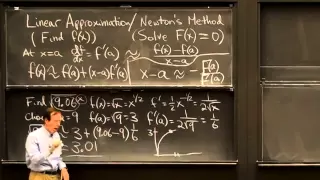 Linear Approximation/Newton's Method
(Find f(x)) (Solve F(x)=0)
At x=a df/dx = f'(a) ≈ f(x)-f(a)/x-a
f(x) ≈ f(a)+(x-a)f'(a) x-a ≈ -F(a)/F'(a)
Find √9.06 f(x)=√x=x^1/2 f'=½x^-1/2=1/2√x
= 9 f(a)=√9=3 f'(a)=1/2√9=1/6
≈ 3+(9.06-9)1/6 3
3.01